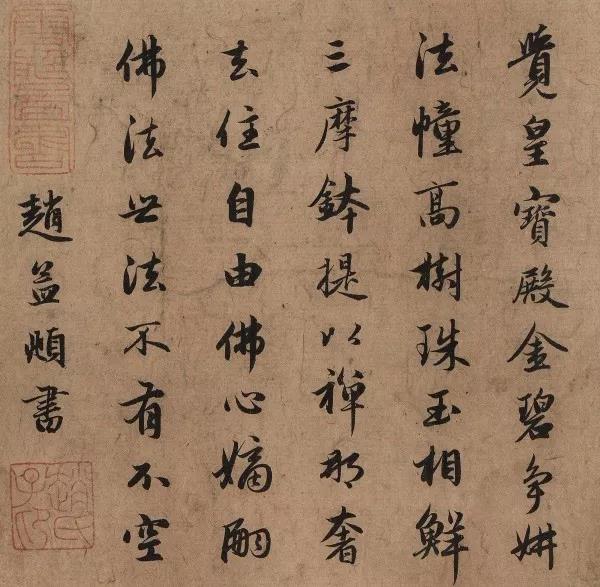 覺皇寶殿金碧爭妍
法幢高樹珠玉相鮮
三摩鉢提以禪那奢
去住自由佛心嫡嗣
佛法世法不有不空
趙孟頫書
趙氏子昂